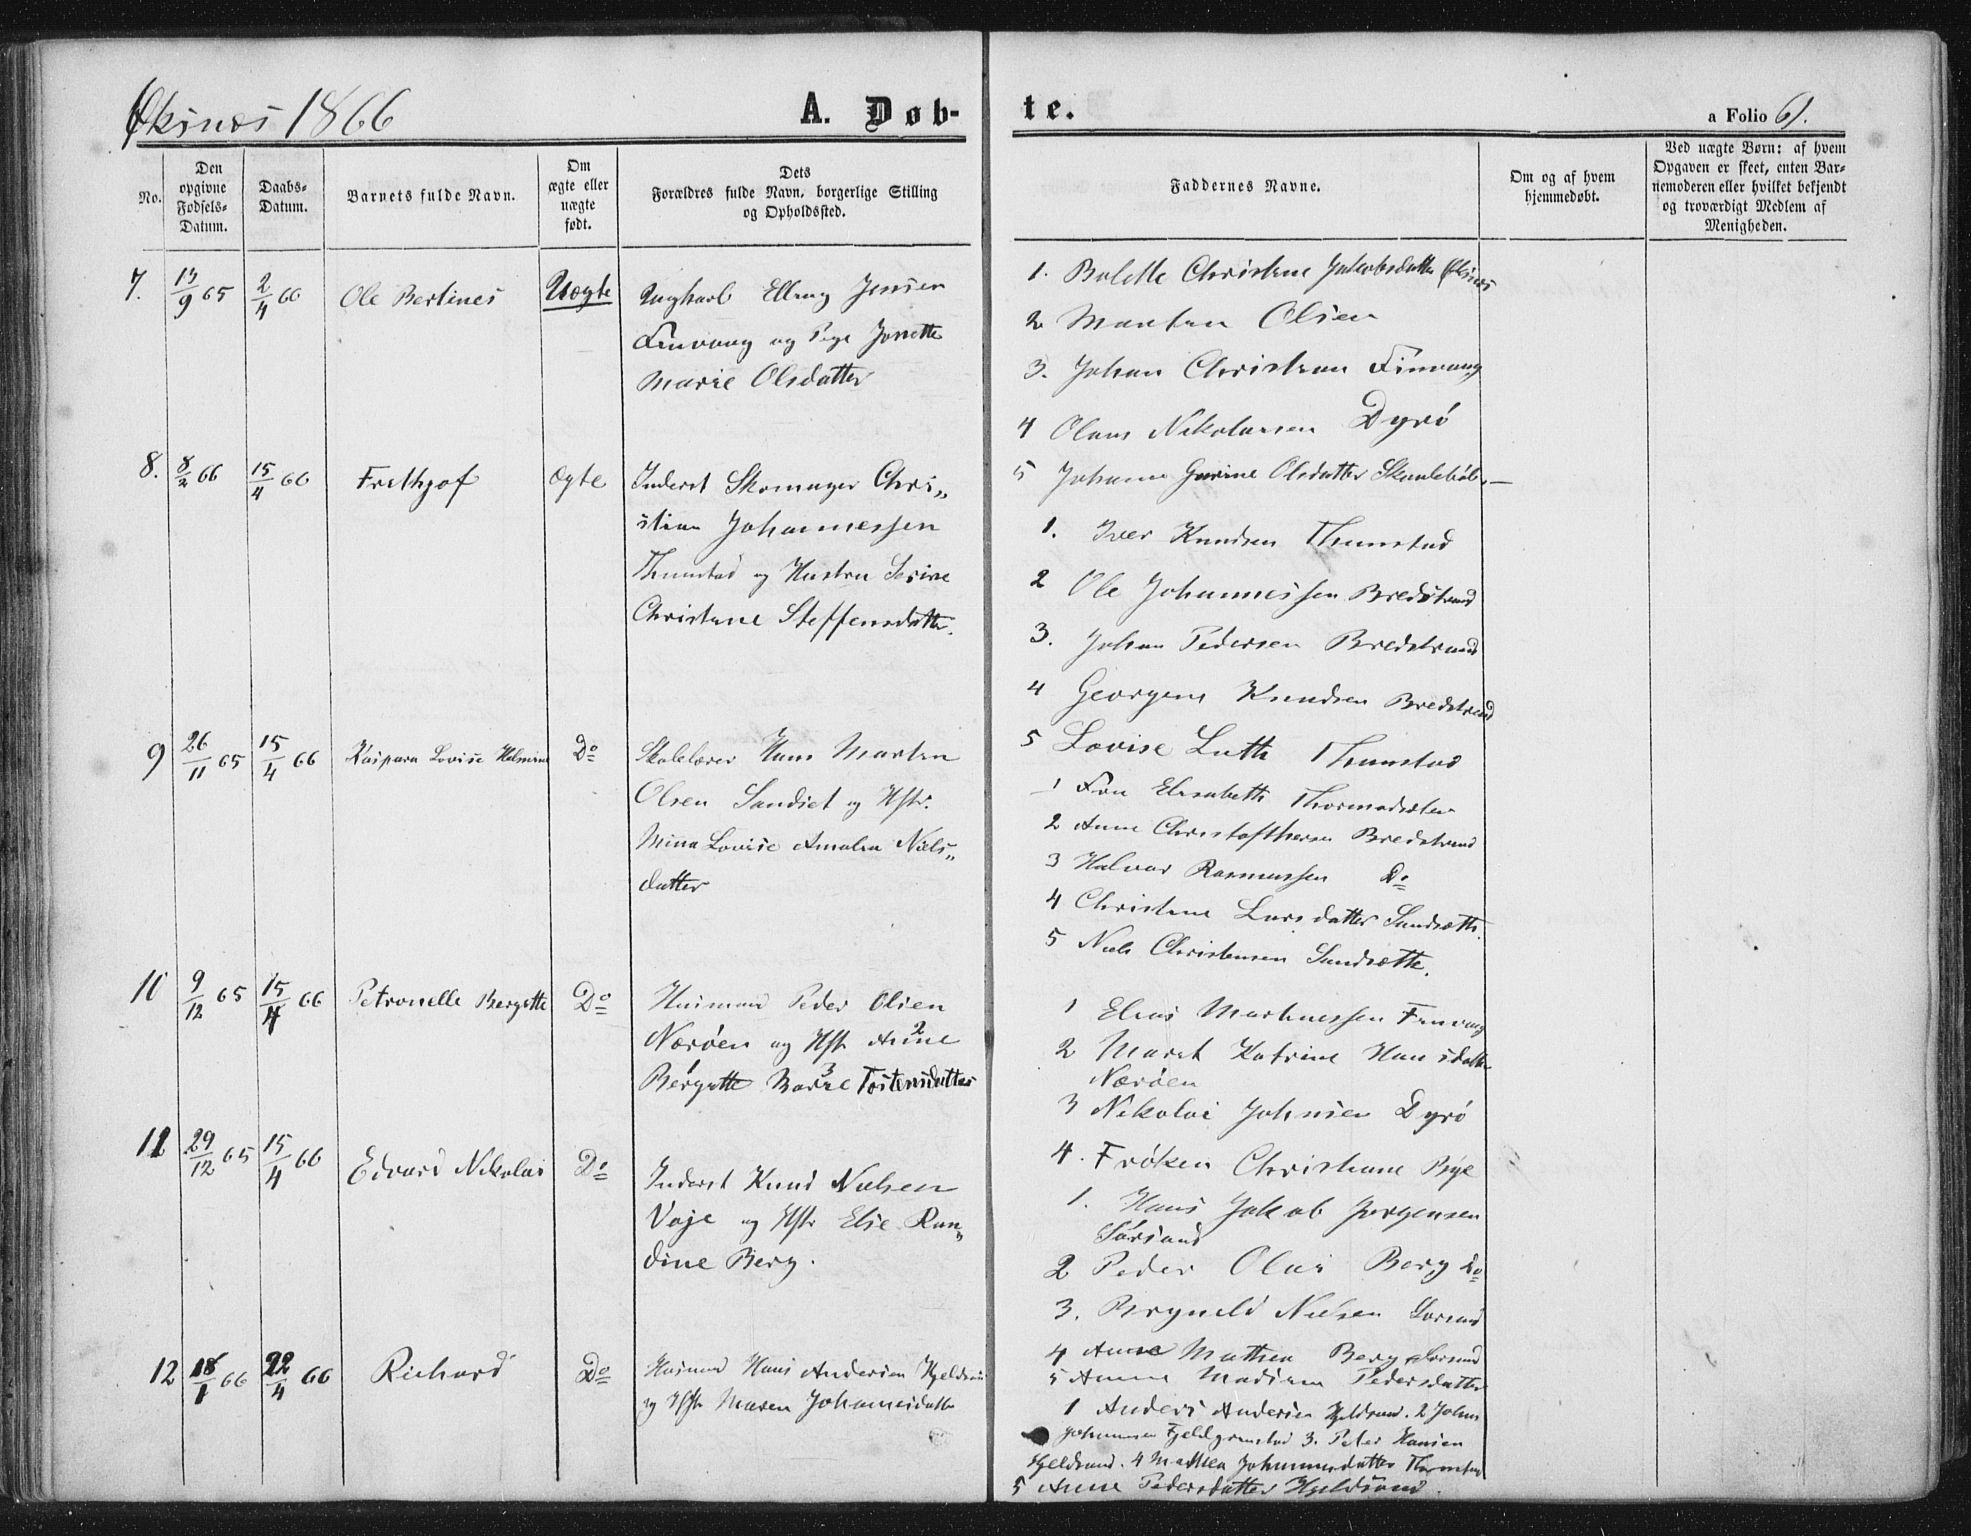 Øksnæs 1866
A. Døb-
te.
a Folio 61.
No.
Den opgivne Fødsels-Datum.
Daabs-Datum.
Barnets fulde Navn.
Om ægte eller uægte født.
Dets Forældres fulde Navn, borgerlige Stilling og Opholdssted.
Faddernes Navne.
Om og af hvem hjemmedøbt.
Ved uægte Børn: af hvem Opgaven er skeet, enten Barnemoderen eller hvilket bekjendt og troværdigt Medlem af Menigheden.
7. 13/9 65 2/4 66 Ole Bertines Uægte
Ungkarl Elling Jensen
Finvaag og Pige Jonette
Marie Olsdatter
1. Bolette Christine Jakobsdatter Øksnæs
2 Martin Olsen
3. Johan Christian Finvaag
4 Olaus Nikolaisen Dyrö
5 Johanna Olsdatter
8. 8/2 66 15/4 66 Frethjof ægte
Inderst Skomager Chri„
stian Johannessen
Thunstad og Hustru Serine
Christine Steffensdatter.
1. Iver Knudsen Thunstad
2 Ole Johannessen Bredstrand
3. Johan Pedersen Bredstrand
4 Georgine Knudsen Bredstrand
5 Lovise Luth Thunstad
9 26/11 65 15/4 66 Kaspara Lovise Do
Skolelærer Hans Martin
Olsen Sandset og Hstr.
Mina Lovise Amalia Niels„
datter
1 Fru Elisabeth
2 Anne Bredstrand
3 Halvor Rasmussen Do
4 Christine Larsdatter Sandsætte.
5 Niels Christensen Sandsætte.
10 9/12 65 15/4 66 Petronelle Bergette Do
Husmand Peder Olsen
Næröen og Hstr Anne 2
Bergette Marie 3 Tostensdatter
1 Elias Martinessen Finvaag
2 Maret Katrine Hansdatter
Næröen
3 Nikolai Johnsen Dyrö
4. Fröken Christiane Bye
11 29/12 65 15/4 66 Edvard Nikolai Do
Inderst Knud Nielsen
Vaje og Hstr Else Ran„
dine Berg.
1. Hans Jakob Jørgensen
Sörsand
2 Peder Olai Berg Do
3. Nielsen Sorsand
4 Anne Mathea Berg Sorsand
5 Anne Pedersdatter
12 18/1 66 22/4 66 Richard Do
Husmand Hans Andersen Hjeldsand
og Hstr Maren Johannesdatter
1 Anders Andersen Hjeldsand. 2 Johan
Johannesen 3. Peter Hansen
Hjeldsand. 4 Mathea Johannesdatter
5 Anne Pedersdatter Hjeldsand.